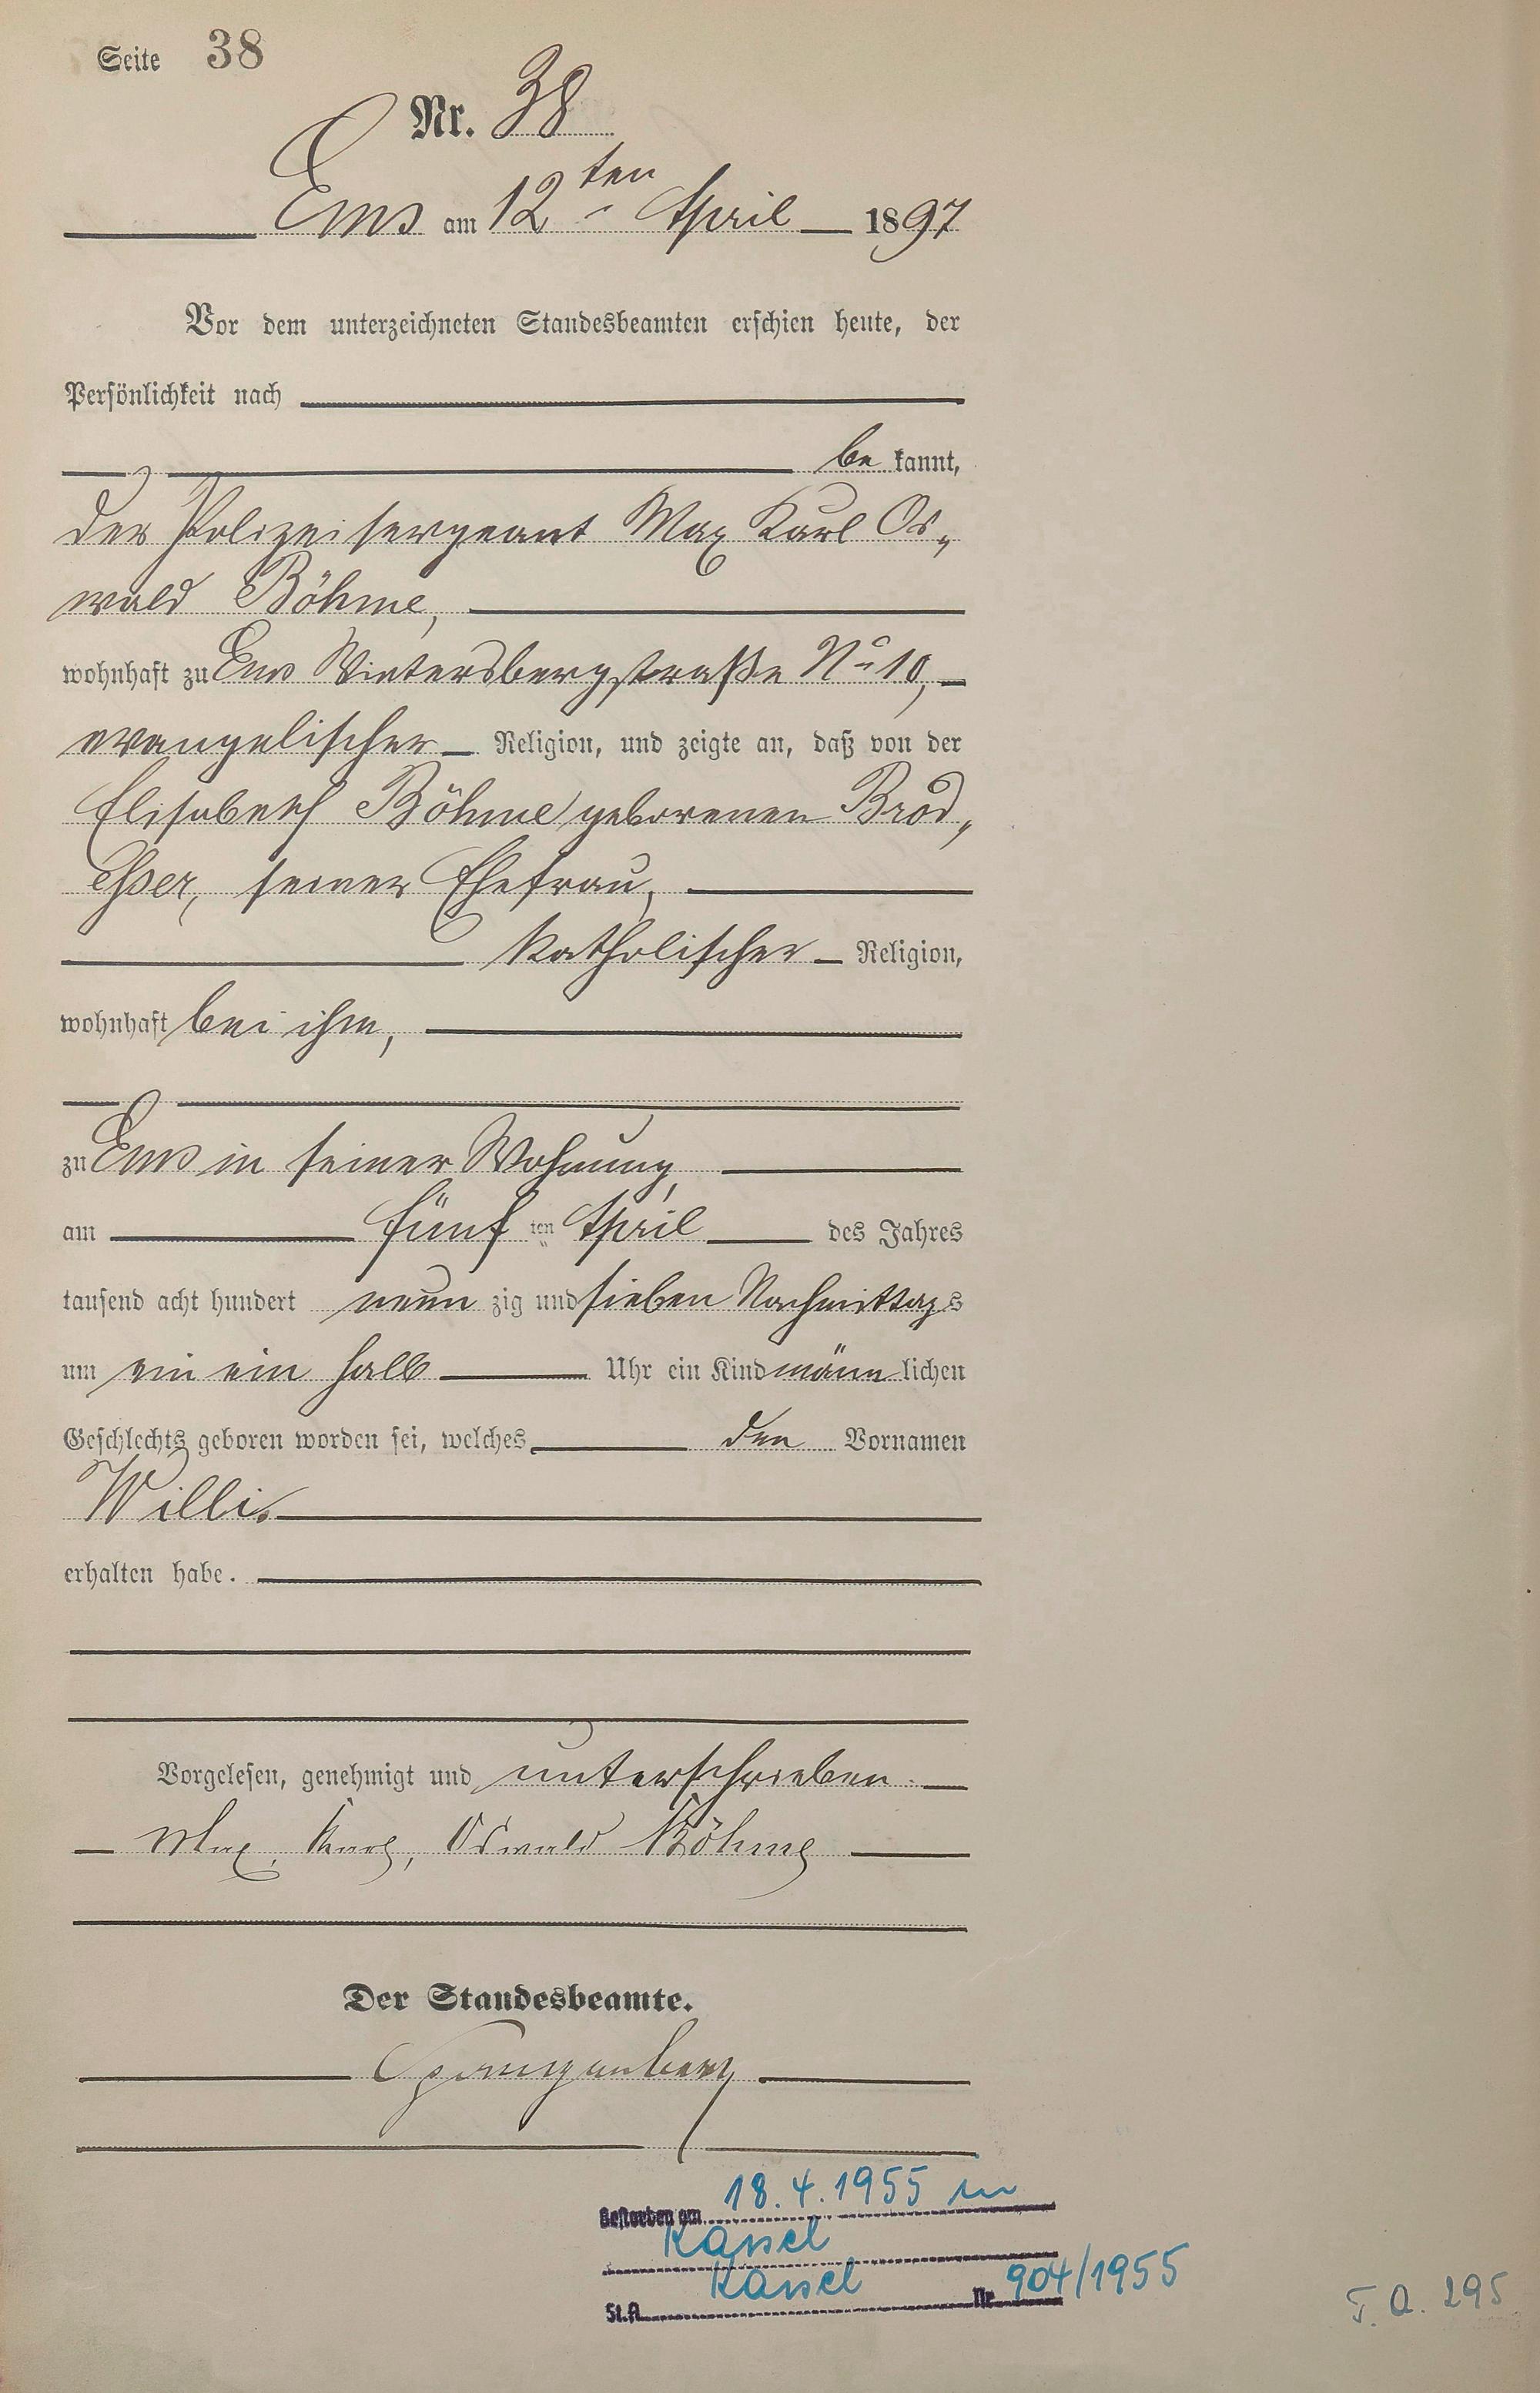 Seite 38
Nr. 38
Ems am 12ten April 1897
Vor dem unterzeichneten Standesbeamten erschien heute, der
Persönlichkeit nach
be kannt,
der Polizeisergeant Max Karl Os„
wald Böhme,
wohnhaft zu Ems Wintersbergstraße No 10,
evangelischer Religion, und zeigte an, daß von der
Elisabeth Böhme geborenen Brod„
eßer, seiner Ehefrau,
katholischer Religion,
wohnhaft bei ihm,
zu Ems in seiner Wohnung,
am fünf ten April des Jahres
tausend acht hundert neun zig und sieben Nachmittags
um ein ein halb Uhr ein Kind männ lichen
Geschlechts geboren worden sei, welches den Vornamen
Willi.
erhalten habe.
Vorgelesen, genehmigt und unterschrieben.
Max, Karl, Oswald Böhme
Der Standesbeamte.
Spangenberg
Gestorben am 18.4.1955 in
Kassel
St.A. Kassel Nr. 904/1955
T. A. 295